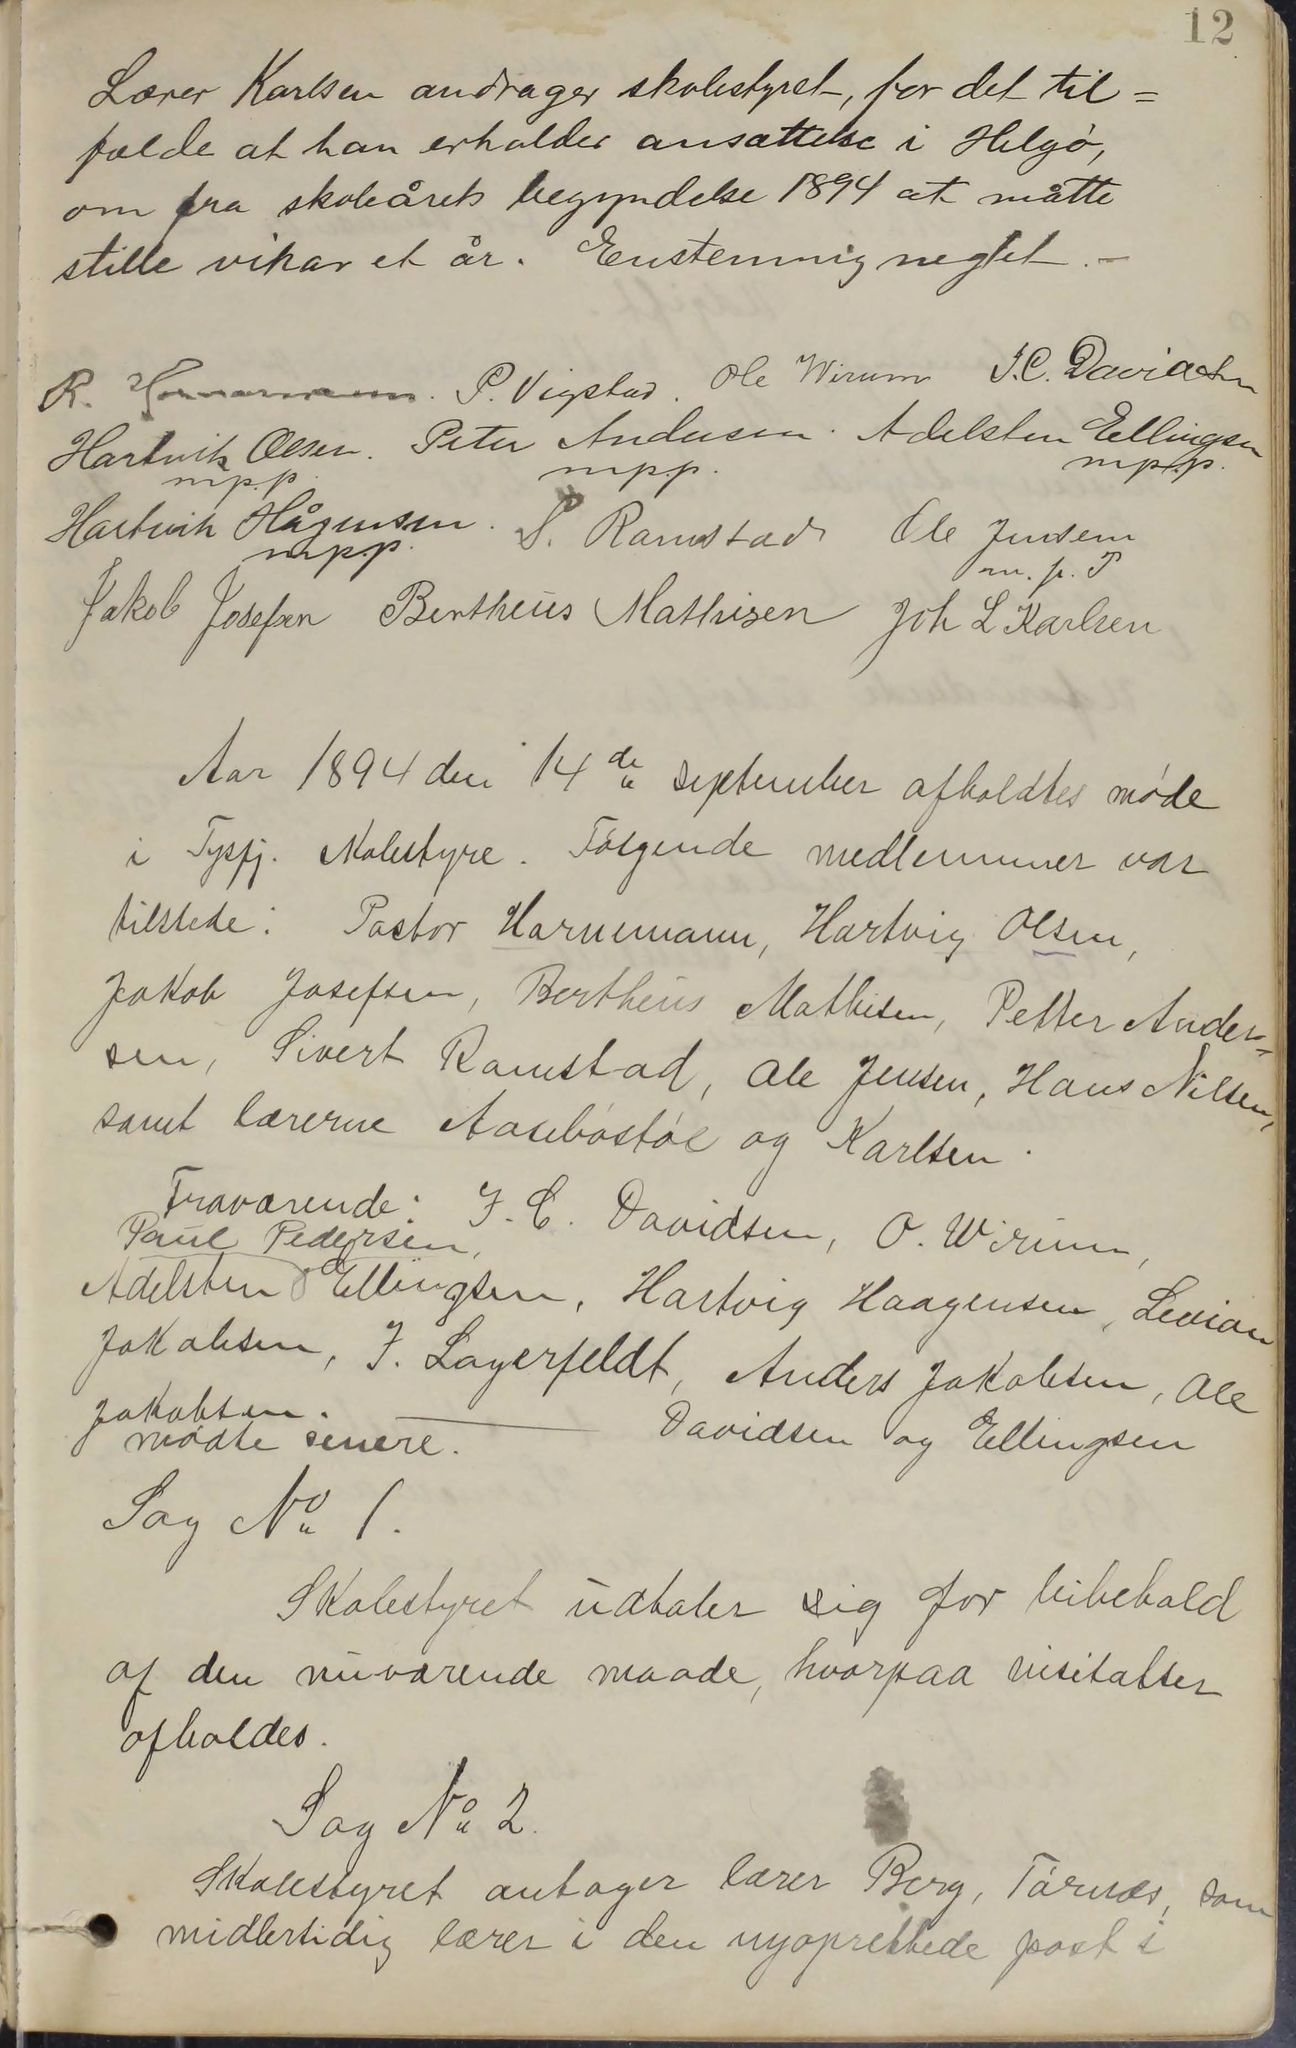 12
Lærer Karlsen andrager skolestyret, for det til=
fælde at han erholder ansættelse i Helgø,
om fra skoleårets begyndelse 1894 at måtte
stille vikar et år. Enstemmig negtet. –
R. Hornemann. P. Vigstad. Ole Wirum J.C. Davidsen
Hartvik Olsen. Peter Andersen. Adelsten Ellingsen
mpp. mpp. mpp.
Hartvik Hågensen. S. Ramstad Ole Jensen
mpp. m.p.P
Jakob Josefsen Bertheus Mathisen Joh L Karlsen
Aar 1894 den 14de september afholdtes møde
i Tysfj. skolestyre. Følgende medlemmer var
tilstede: Pastor Hornemann, Hartvig Olsen,
Jakob Josefsen, Bertheus Mathisen, Petter Ander=
sen, Sivert Ramstad, Ole Jensen, Hans Nilsen,
samt lærerne Aasebøstøl og Karlsen.
Fraværende: J. C. Davidsen, O. Wirum,
Paul Pedersen,
Adelsten Ellingsen, Hartvig Haagensen,
Jakobsen, J. Lagerfeldt, Anders Jakobsen, Ole
Jakobsen. — Davidsen og Ellingsen
mødte senere.
Sag No 1.
Skolestyret udtaler sig for bibehold
af den nuværende maade, hvorpaa visitatser
afholdes.
Sag No 2.
Skolestyret antager lærer Berg, Tårnæs, som
midlertidig lærer i den nyoprettede post i